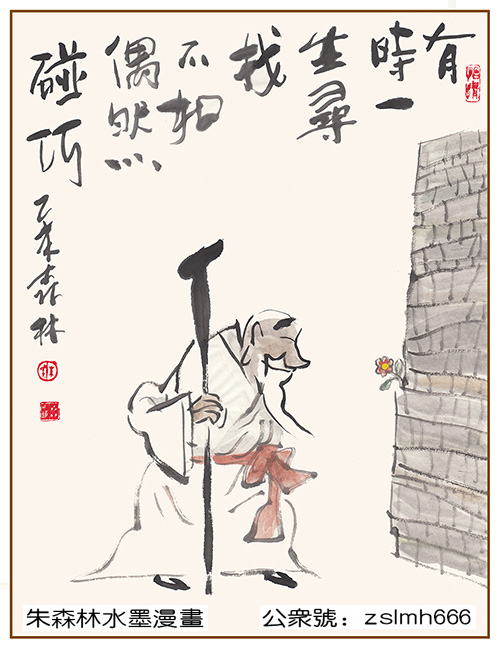 有
時一
生尋
找
不如
偶然
碰巧
乙未森林
朱森林水墨漫畫
公衆號：zslmh666